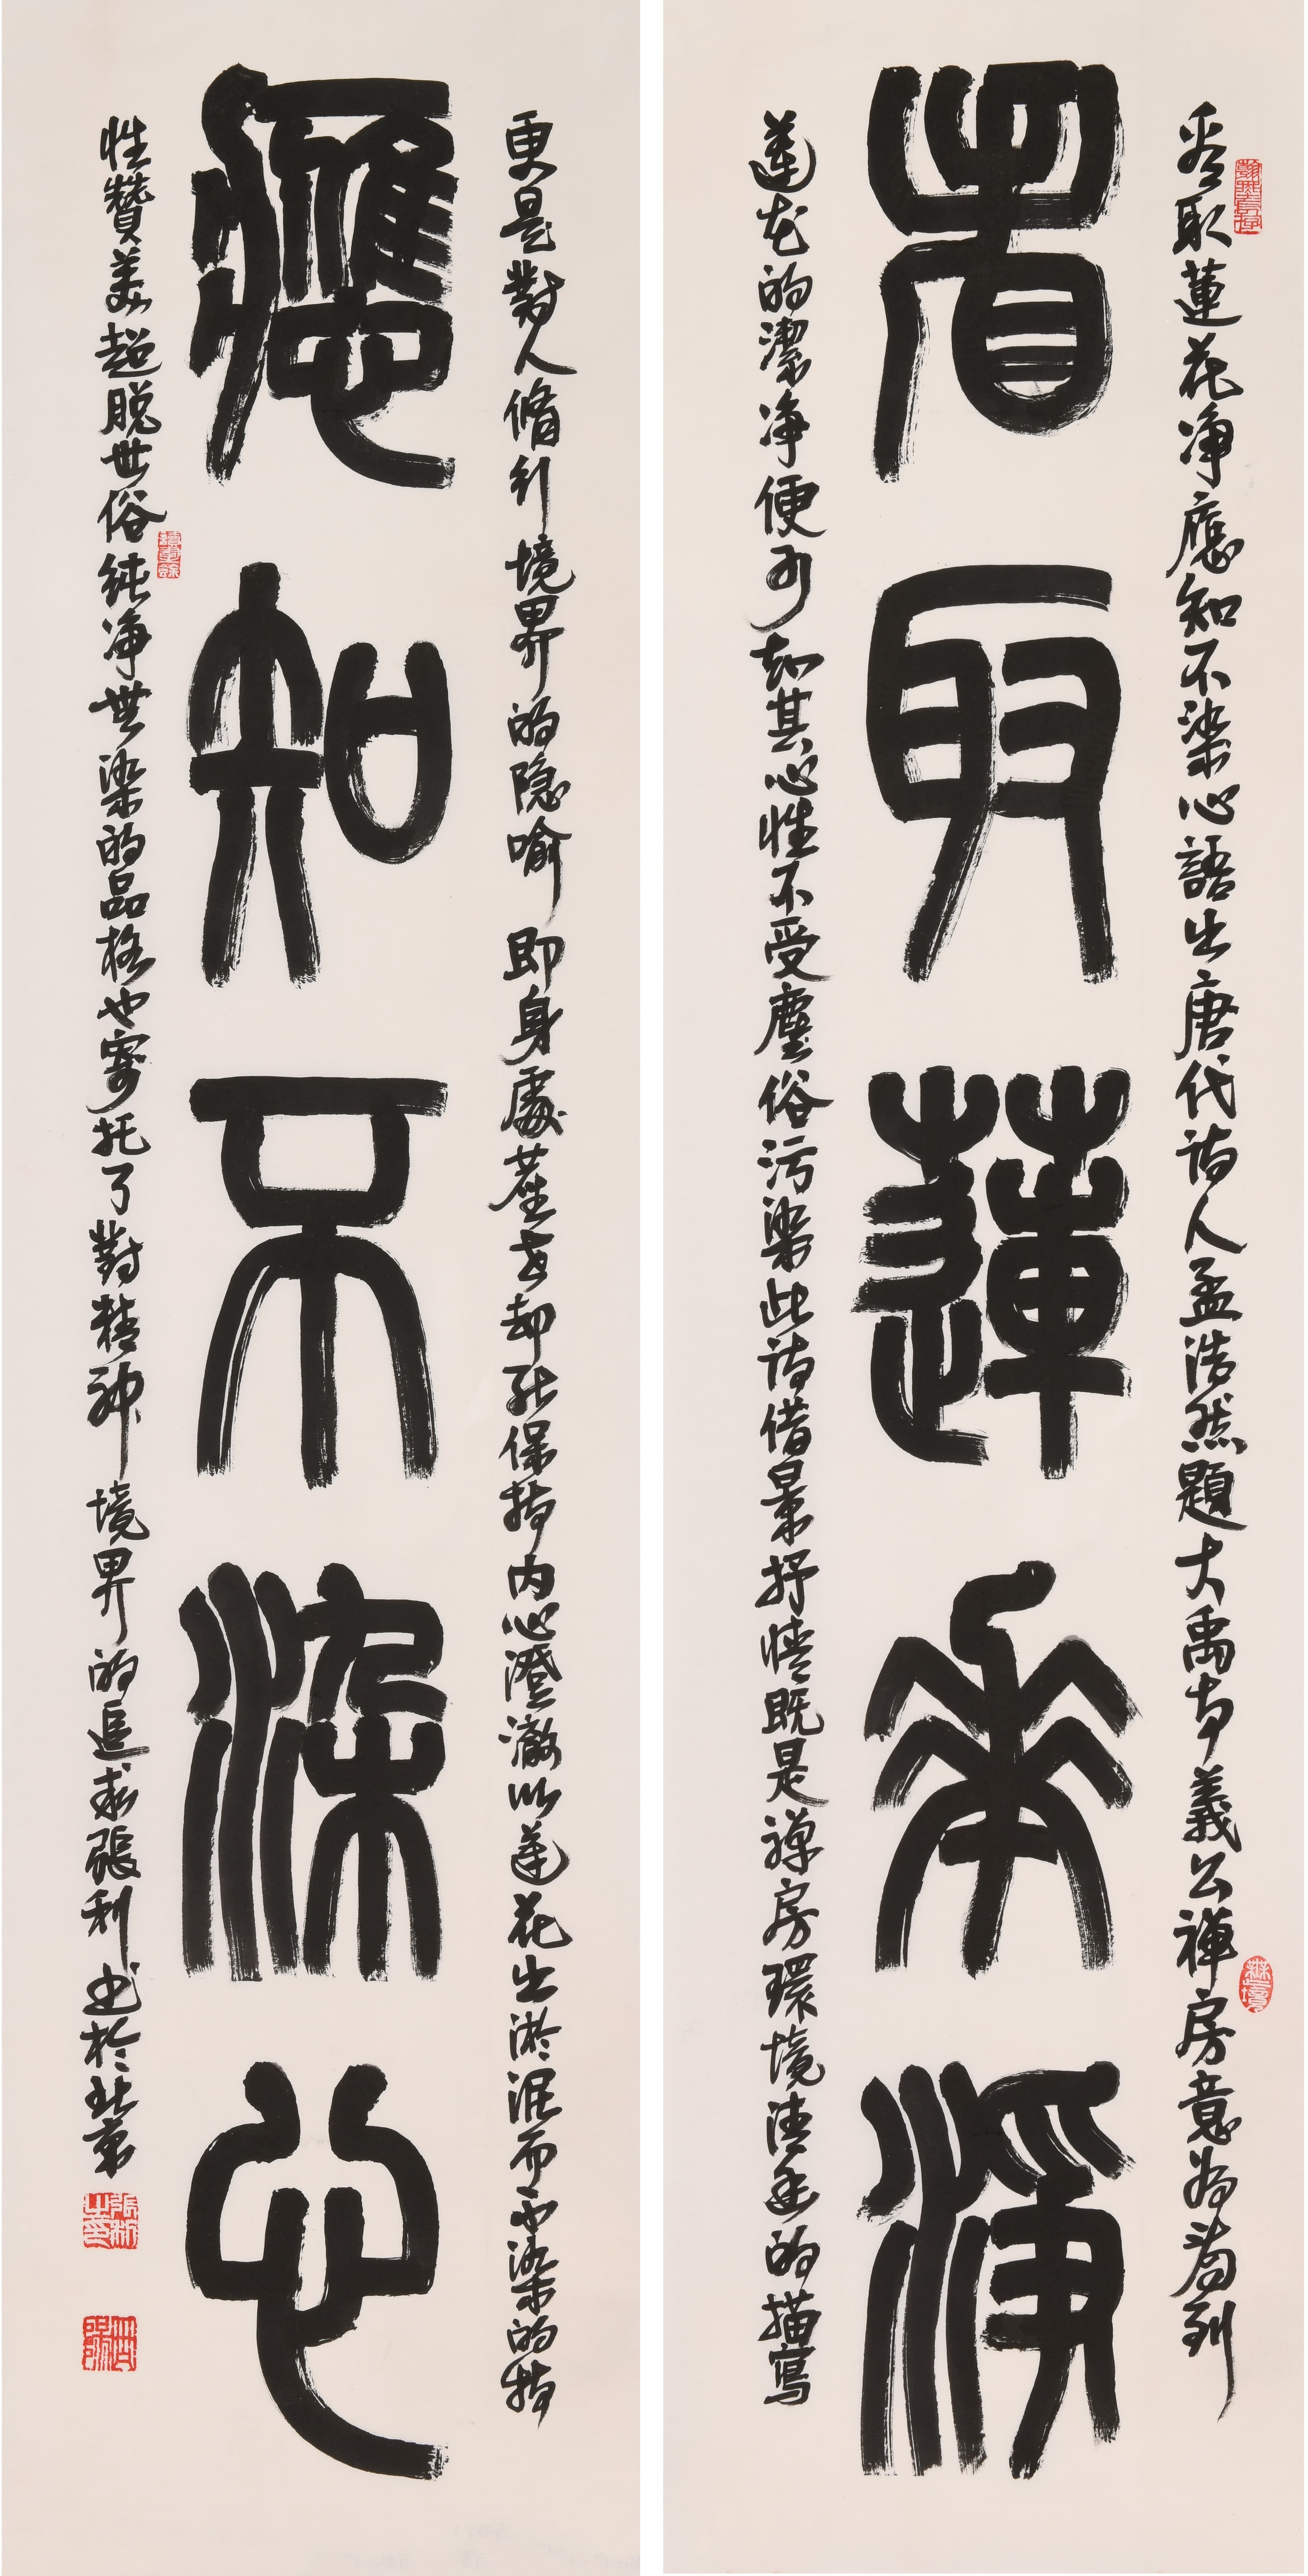 看取蓮花净應知不染心語出唐代詩人孟浩然題大禹寺義公禪房意為看到
看取蓮花淨
蓮花的潔净便可知其心性不受塵俗污染此詩借景抒情既是禪房環境清幽的描寫
更是對人脩行境界的隐喻即身處塵世却能保持内心澄澈以蓮花出淤泥而不染的特
應知不染心
性贊美超脱世俗纯净無染的品格也寄托了對精神境界的追求張利書於北京
張利之印